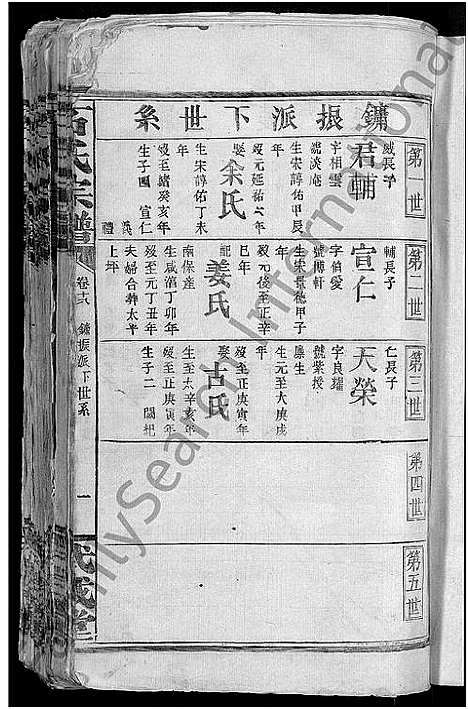 鏞振派下世系
第一世
君輔
長子
字相雲
號淡庵
生宋淳佑甲辰
年
歿元延祐六年
娶余氏
生宋淳佑丁未
年
歿至治癸亥年
生子 宣仁
第二世
輔長子
宣仁
字伯愛
號博軒
生宋景德甲子
年
歿元後至正辛
巳年
配姜氏
生咸淳丁卯年
歿至元丁丑年
夫婦合葬太平
上坪
第三世
仁長子
天榮
字良耀
號紫授
廩生
生元至大庚戌
年
歿至正庚寅年
娶古氏
生至大辛亥年
歿至正庚寅年
生子二
第四世
第五世
宗譜
卷六
鏞振派下世系
一